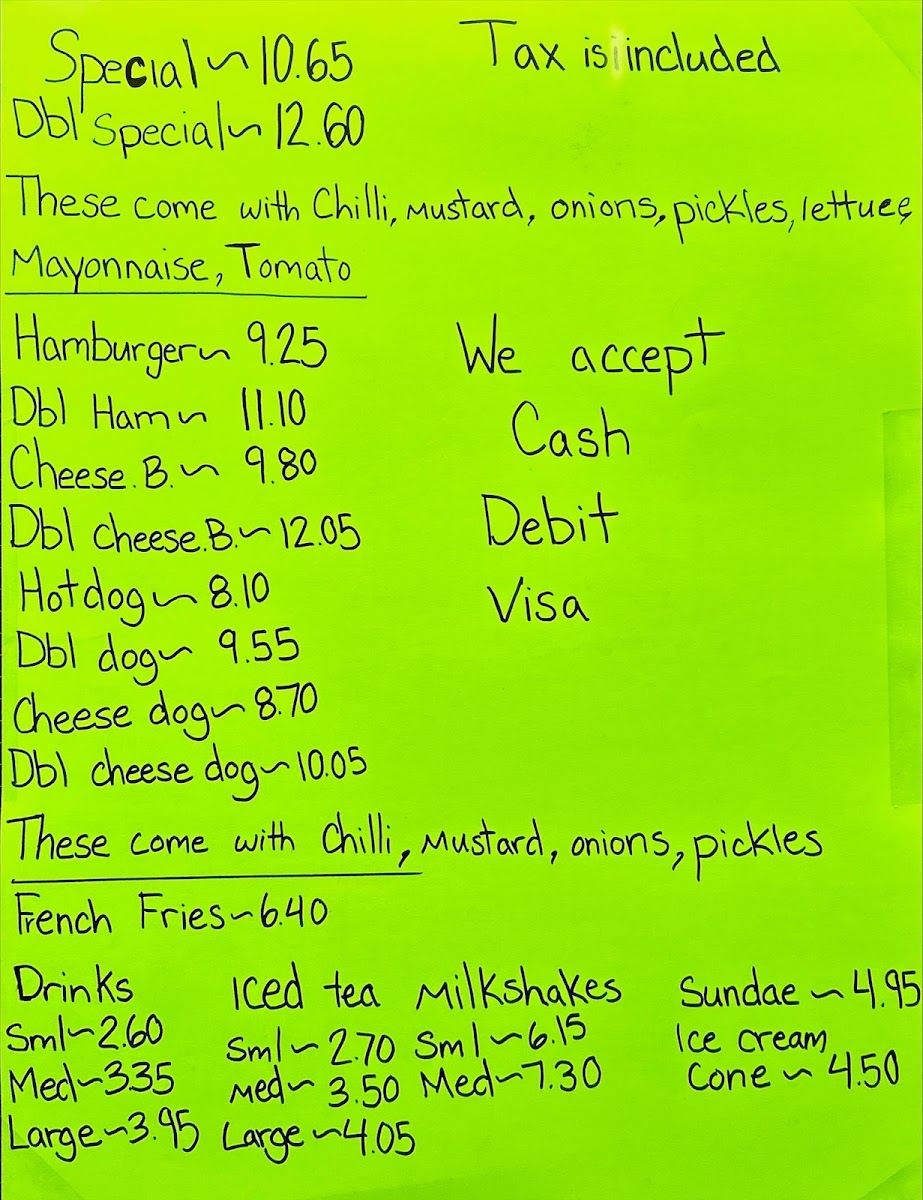 Special ~ 10.65
Tax is included
Dbl Special ~ 12.60
These come with Chilli, Mustard, onions, pickles, lettuce,
Mayonnaise, Tomato
Hamburger ~ 9.25
Dbl Ham ~ 11.10
Cheese.B. ~ 9.80
Dbl cheese.B. ~ 12.05
Hotdog ~ 8.10
Dbl dog ~ 9.55
Cheese dog ~ 8.70
Dbl cheese dog ~ 10.05
We accept
Cash
Debit
Visa
These come with Chilli, Mustard, onions, pickles
French Fries ~ 6.40
Drinks
Sml ~ 2.60
Med ~ 3.35
Large ~ 3.95
Iced tea
Sml ~ 2.70
med ~ 3.50
Large ~ 4.05
Milkshakes
Sml ~ 6.15
Med ~ 7.30
Sundae ~ 4.95
Ice cream
Cone ~ 4.50